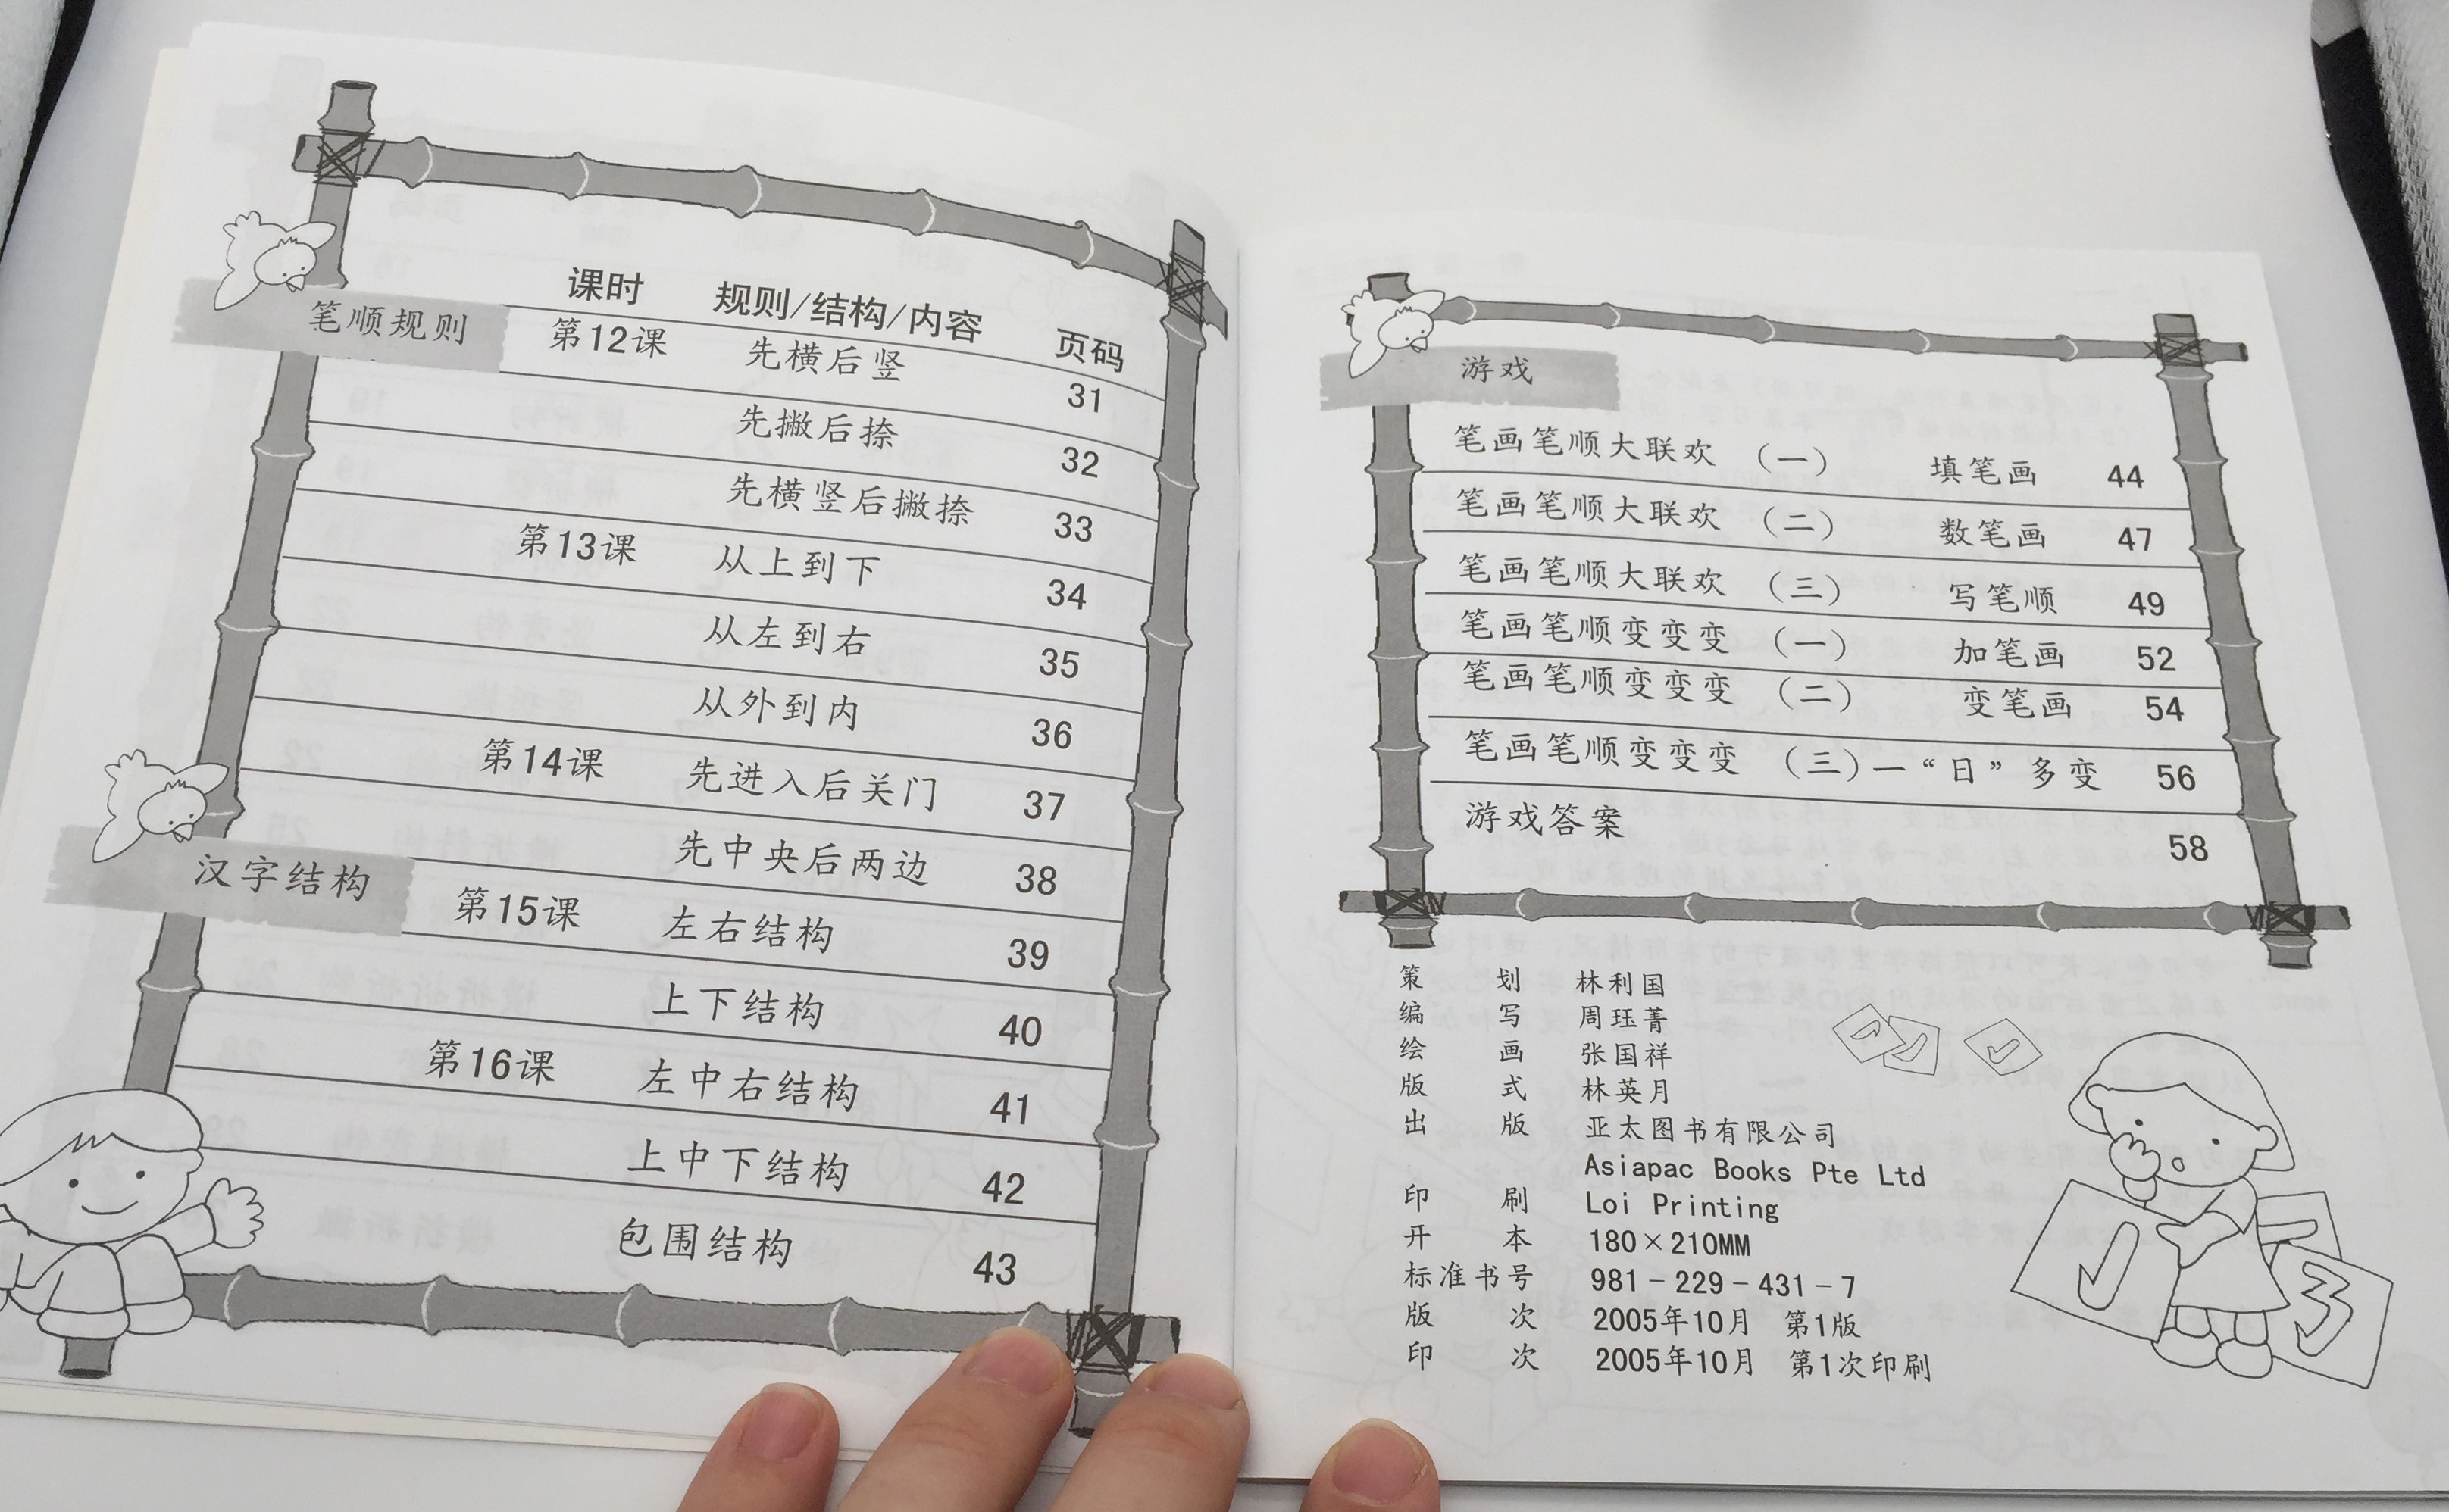 课时 规则/结构/内容 页码
笔顺规则 第12课 先横后竖 31
先撇后捺 32
先横竖后撇捺 33
第13课 从上到下 34
从左到右 35
从外到内 36
第14课 先进入后关门 37
先中央后两边 38
汉字结构 第15课 左右结构 39
上下结构 40
第16课 左中右结构 41
上中下结构 42
包围结构 43
游戏
笔画笔顺大联欢 （一） 填笔画 44
笔画笔顺大联欢 （二） 数笔画 47
笔画笔顺大联欢 （三） 写笔顺 49
笔画笔顺变变变 （一） 加笔画 52
笔画笔顺变变变 （二） 变笔画 54
笔画笔顺变变变 （三）一“日”多变 56
游戏答案 58
策划 林利国
编写 周珏菁
绘画 张国祥
版式 林英月
出版 亚太图书有限公司
Asiapac Books Pte Ltd
印刷 Loi Printing
开本 180×210MM
标准书号 981-229-431-7
版次 2005年10月 第1版
印次 2005年10月 第1次印刷